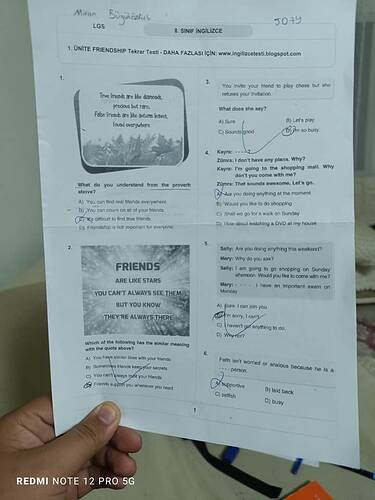 LGS
8. SINIF İNGİLİZCE
1. ÜNİTE FRIENDSHIP Tekrar Testi - DAHA FAZLASI İÇİN: www.ingilizcetesti.blogspot.com
1.
True friends are like diamonds,
precious but rare.
False friends are like autumn leaves,
found everywhere.
What do you understand from the proverb
above?
A) You can find real friends everywhere
B) You can count on all of your friends
difficult to find true friends
D) Friendship is not important for everyone
2.
FRIENDS
ARE LIKE STARS
YOU CAN'T ALWAYS SEE THEM
BUT YOU KNOW
THEY'RE ALWAYS THERE
Which of the following has the similar meaning
with the quote above?
A) You have similar likes with your friends
B) Sometimes friends keep your secrets
C) You can't always trust your friends
Friends support you whenever you need
3.
You invite your friend to play chess but she
refuses your invitation.
What does she say?
A) Sure
B) Let's play
C) Sounds good
D) I'm so busy.
4.
Kayra: - - - -?
Zümra: I don't have any plans. Why?
Kayra: I'm going to the shopping mall. Why
don't you come with me?
Zümra: That sounds awesome. Let's go.
A) Are you doing anything at the moment
B) Would you like to do shopping
C) Shall we go for a walk on Sunday
D) How about watching a DVD at my house
5.
Sally: Are you doing anything this weekend?
Mary: Why do you ask?
Sally: I am going to go shopping on Sunday
afternoon. Would you like to come with me?
Mary: - - - - I have an important exam on
Monday
A) Sure. I can join you.
I'm sorry, I can't
C) I haven't got anything to do.
D) Why not?
6.
Fatih isn't worried or anxious because he is a
- - - - person.
A) supportive
B) laid back
C) selfish
D) busy
1
REDMI NOTE 12 PRO 5G